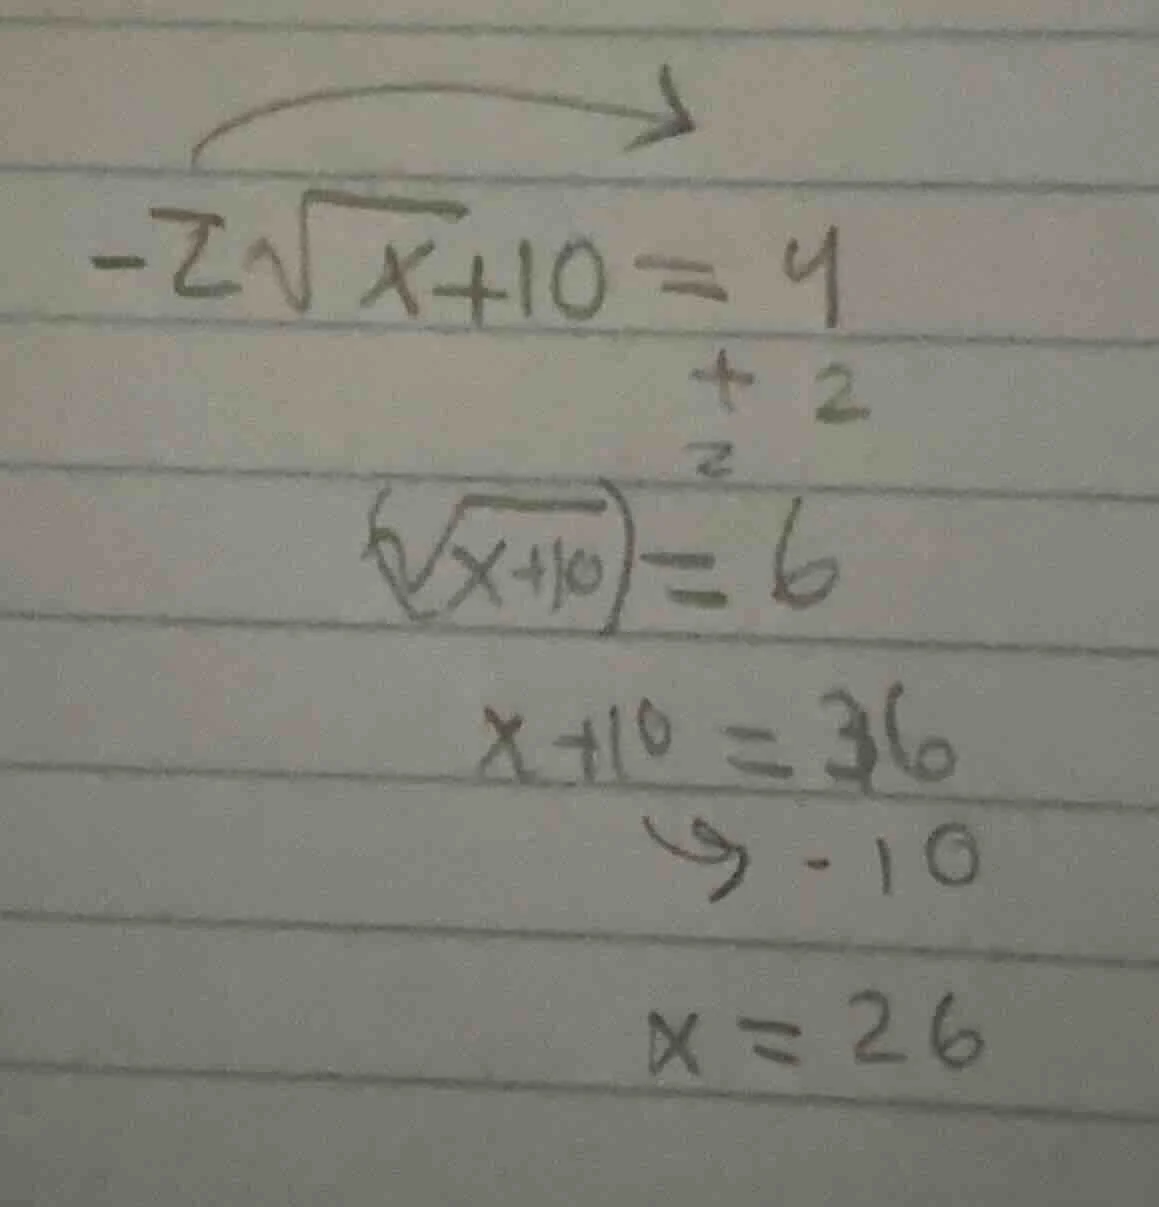 -2√x+10 = 4
+ 2
2
(√x+10) = 6
x+10 = 36
-10
x = 26